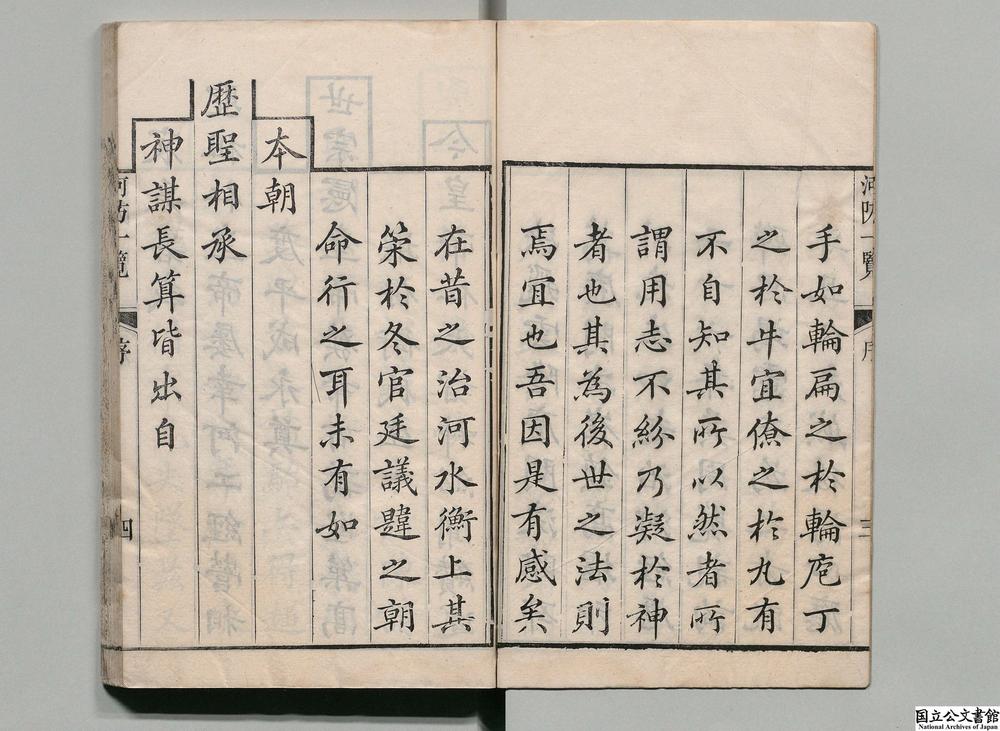 河防一覽
序
三
手如輪扁之於輪庖丁
之於牛宜僚之於丸有
不自知其所以然者所
謂用志不紛乃凝於神
者也其為後世之法則
焉宜也吾因是有感矣
在昔之治河水衡上其
策於冬官廷議韙之朝
命行之耳未有如
本朝
歷聖相承
神謀長算皆出自
河防一覽
序
四
国立公文書館
National Archives of Japan